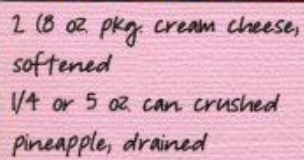 2 (8 oz pkg. cream cheese,
softened
1/4 or 5 oz can crushed
pineapple, drained